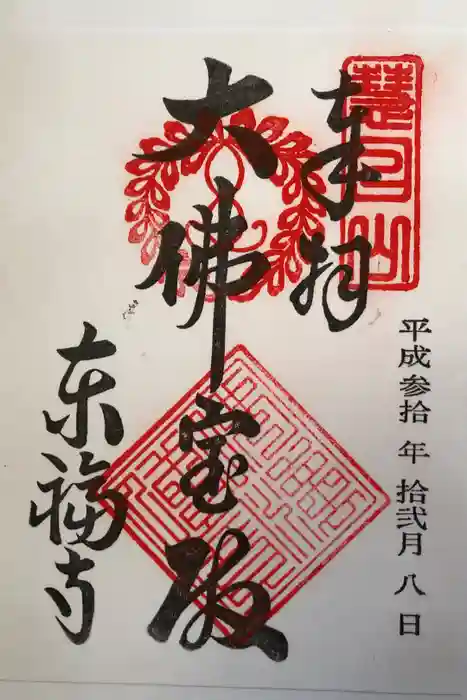 平成参拾年拾弐月八日
奉拝
大佛宝殿
東福寺
慧日山